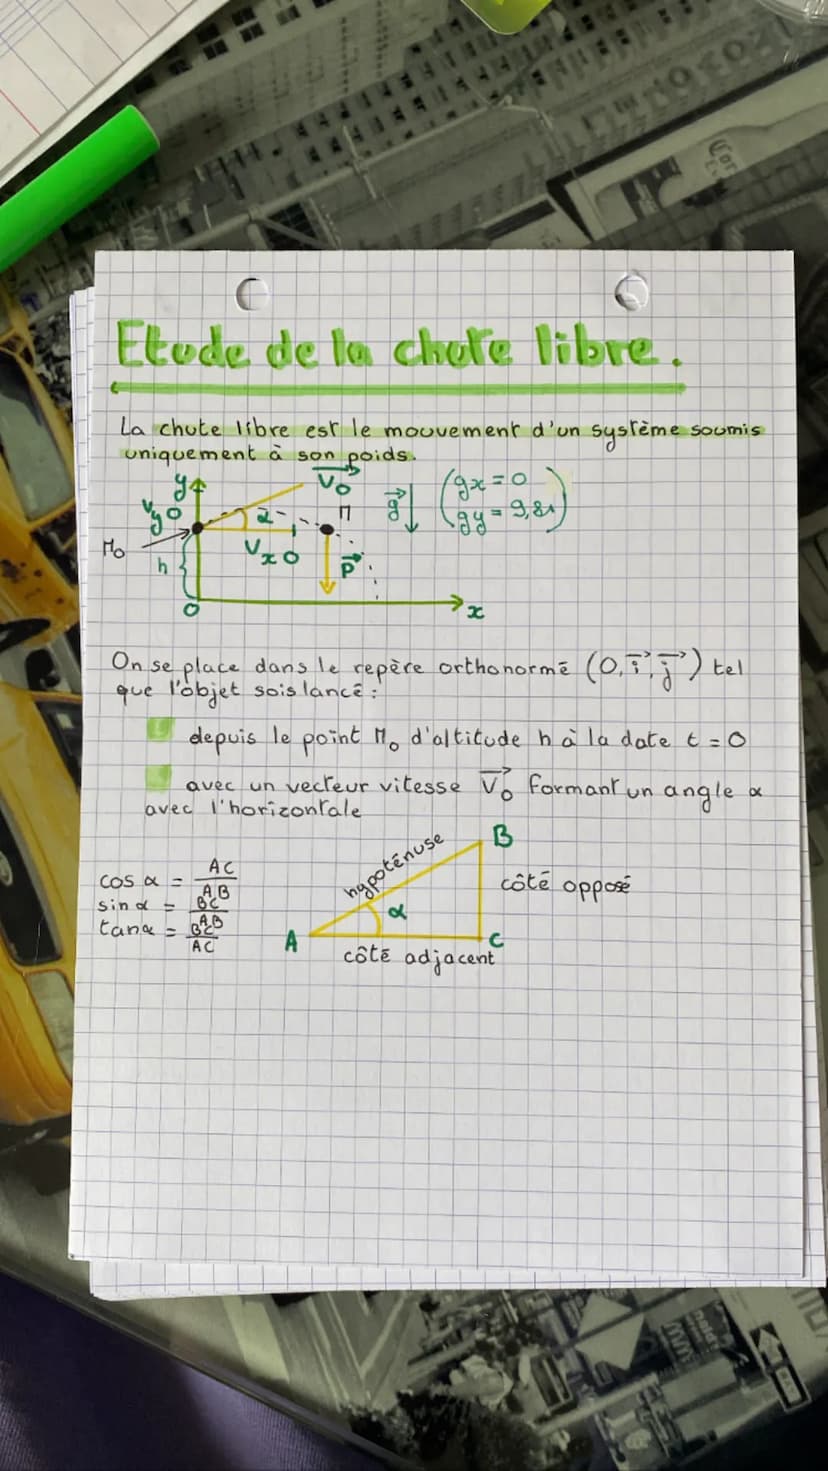 Etude de la chute libre.
La chute libre est le mouvement d'un système soumis
uniquement à son poids.
y
V₀
Vy0
α
M
g
gx = 0
gy = 9,81
M₀
h
Vx0
P
O
x
On se place dans le repère orthonormé (O, i, j) tel
que l'objet sois lancé :
depuis le point M₀ d'altitude h à la date t = 0
avec un vecteur vitesse V₀ formant un angle α
avec l'horizontale
cos α = AC/AB
sin α = BC/AB
tan α = BC/AC
hypoténuse
B
côté opposé
α
A
C
côté adjacent